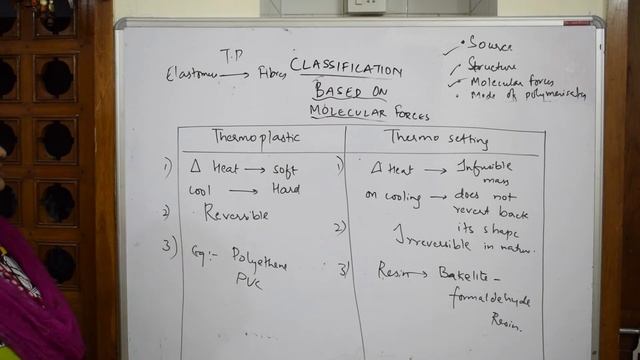 T.P
Elastomer → Fibres
CLASSIFICATION
BASED ON
MOLECULAR FORCES
✓ Source
✓ Structure
✓ Molecular forces
• Mode of polymerisation
Thermoplastic
1) Δ Heat → soft
cool → Hard
2) Reversible
3) Eg:- Polyethene
PVC
Thermo setting
1) Δ Heat → Infusible
mass
on cooling → does not
revert back
its shape
2) Irreversible in nature.
3) Resin → Bakelite -
formaldehyde
Resin.